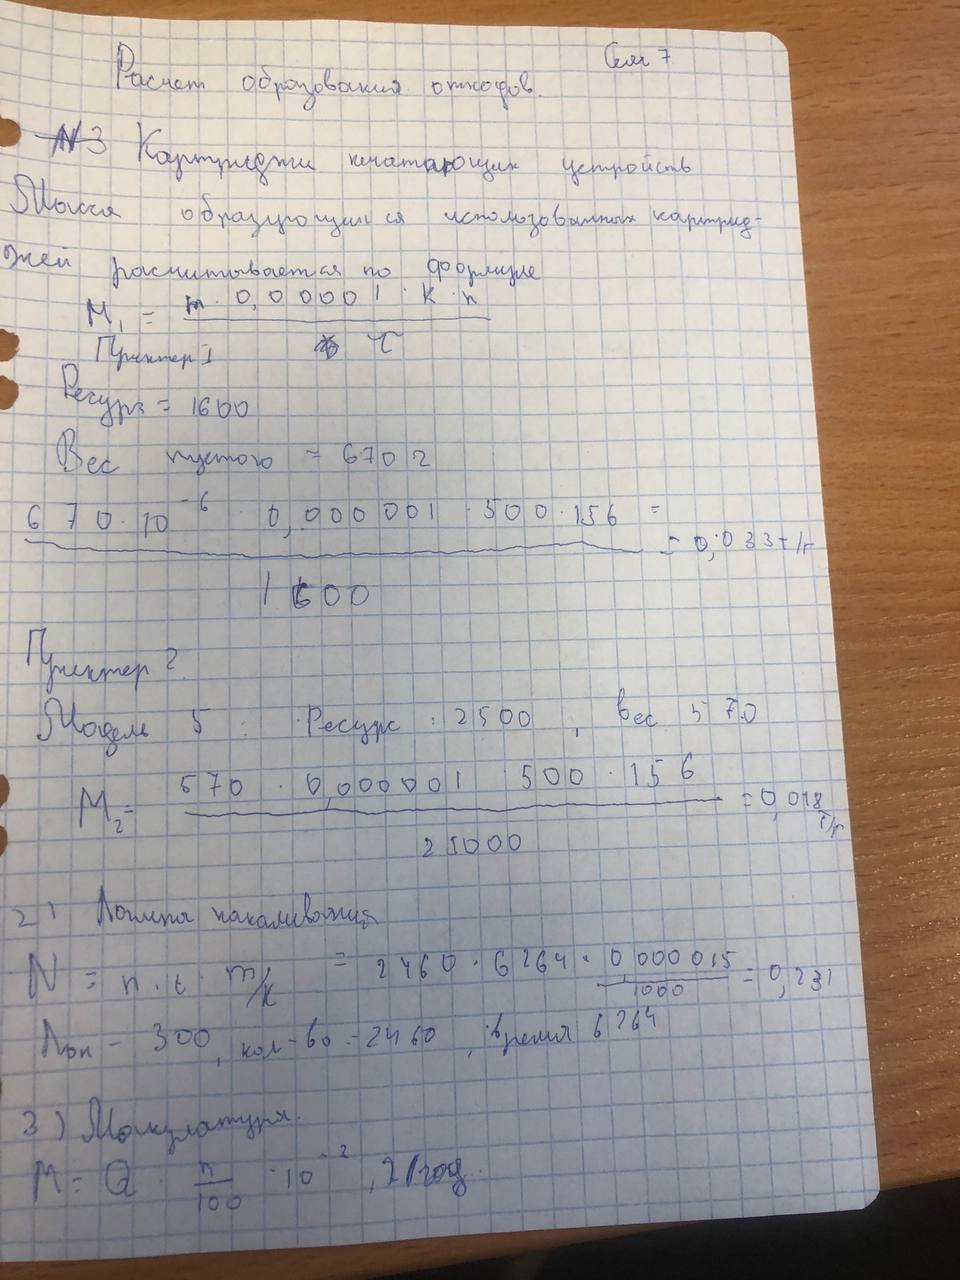 Сем 7
Расчет образования отходов.
№3 Картриджи печатающих устройств
Масса образующихся использованных картрид-
жей расчитывается по формуле
M₁ = m · 0,00001 · K · n / τ
Принтер 1
Ресурс = 1600
Вес пустого = 670 г
670 · 10⁻⁶ · 0,000001 · 500 · 156 / 1600 =
= 0,033 т/г
Принтер 2
Модель 5 : Ресурс : 2500 , вес 570
M₂ = 570 · 0,000001 · 500 · 156 / 25000 = 0,018 т/г
2) Лампа накаливания
N = n · t · m/k = 2460 · 6264 · 0,000015 / 1000 = 0,231
Лон - 300, кол-во - 2460 , время 6264
3) Макулатура.
M = Q · n/100 · 10⁻² , т/год.